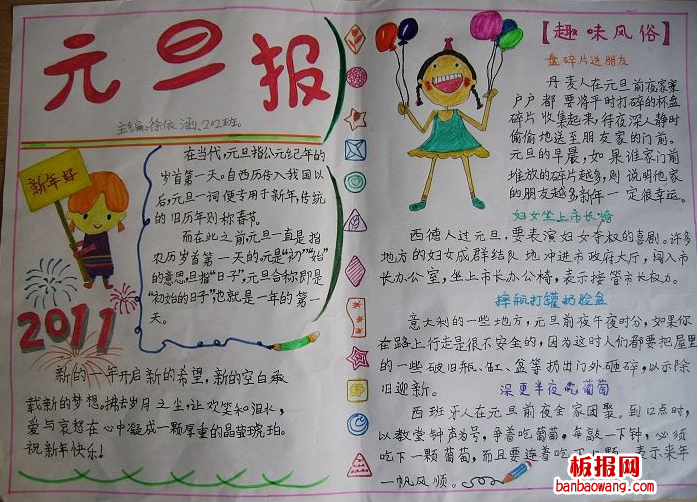 元旦报
主编:徐依涵、202班。
新年好
在当代,元旦指公元纪年的
岁首第一天。自西历传入我国以
后,元旦一词便专用于新年,传统
的旧历年则称春节。
而在此之前,元旦一直是指
农历岁首第一天的。元是“初”“始”
的意思,旦指“日子”,元旦合称即是
“初始的日子”,也就是一年的第一
天。
2011
新的一年开启新的希望,新的空白承
载新的梦想。拂去岁月之尘,让欢笑和泪水,
爱与哀愁在心中凝成一颗厚重的晶莹琥珀。
祝新年快乐!
【趣味风俗】
盘碎片送朋友
丹麦人在元旦前夜,家家
户户都要将平时打碎的杯盘
碎片收集起来,待夜深人静时
偷偷地送至朋友家的门前。
元旦的早晨,如果谁家门前
堆放的碎片越多,则说明他家
的朋友越多,新年一定很幸运。
妇女坐上市长椅
西德人过元旦,要表演妇女夺权的喜剧。许多
地方的妇女成群结队地冲进市政府大厅,闯入市
长办公室,坐上市长办公椅,表示接管市长权力。
摔瓶打罐扔脸盆
意大利的一些地方,元旦前夜午夜时分,如果你
在路上行走是很不安全的,因为这时人们都要把屋里
的一些破旧瓶、缸、盆等扔出门外砸碎,以示除
旧迎新。
深更半夜吃葡萄
西班牙人在元旦前夜全家团聚。到12点时,
以教堂钟声为号,争着吃葡萄,每敲一下钟,必须
吃下一颗葡萄,而且要连着吃下
表示来年
一帆风顺。
板报网
banbaowang.com